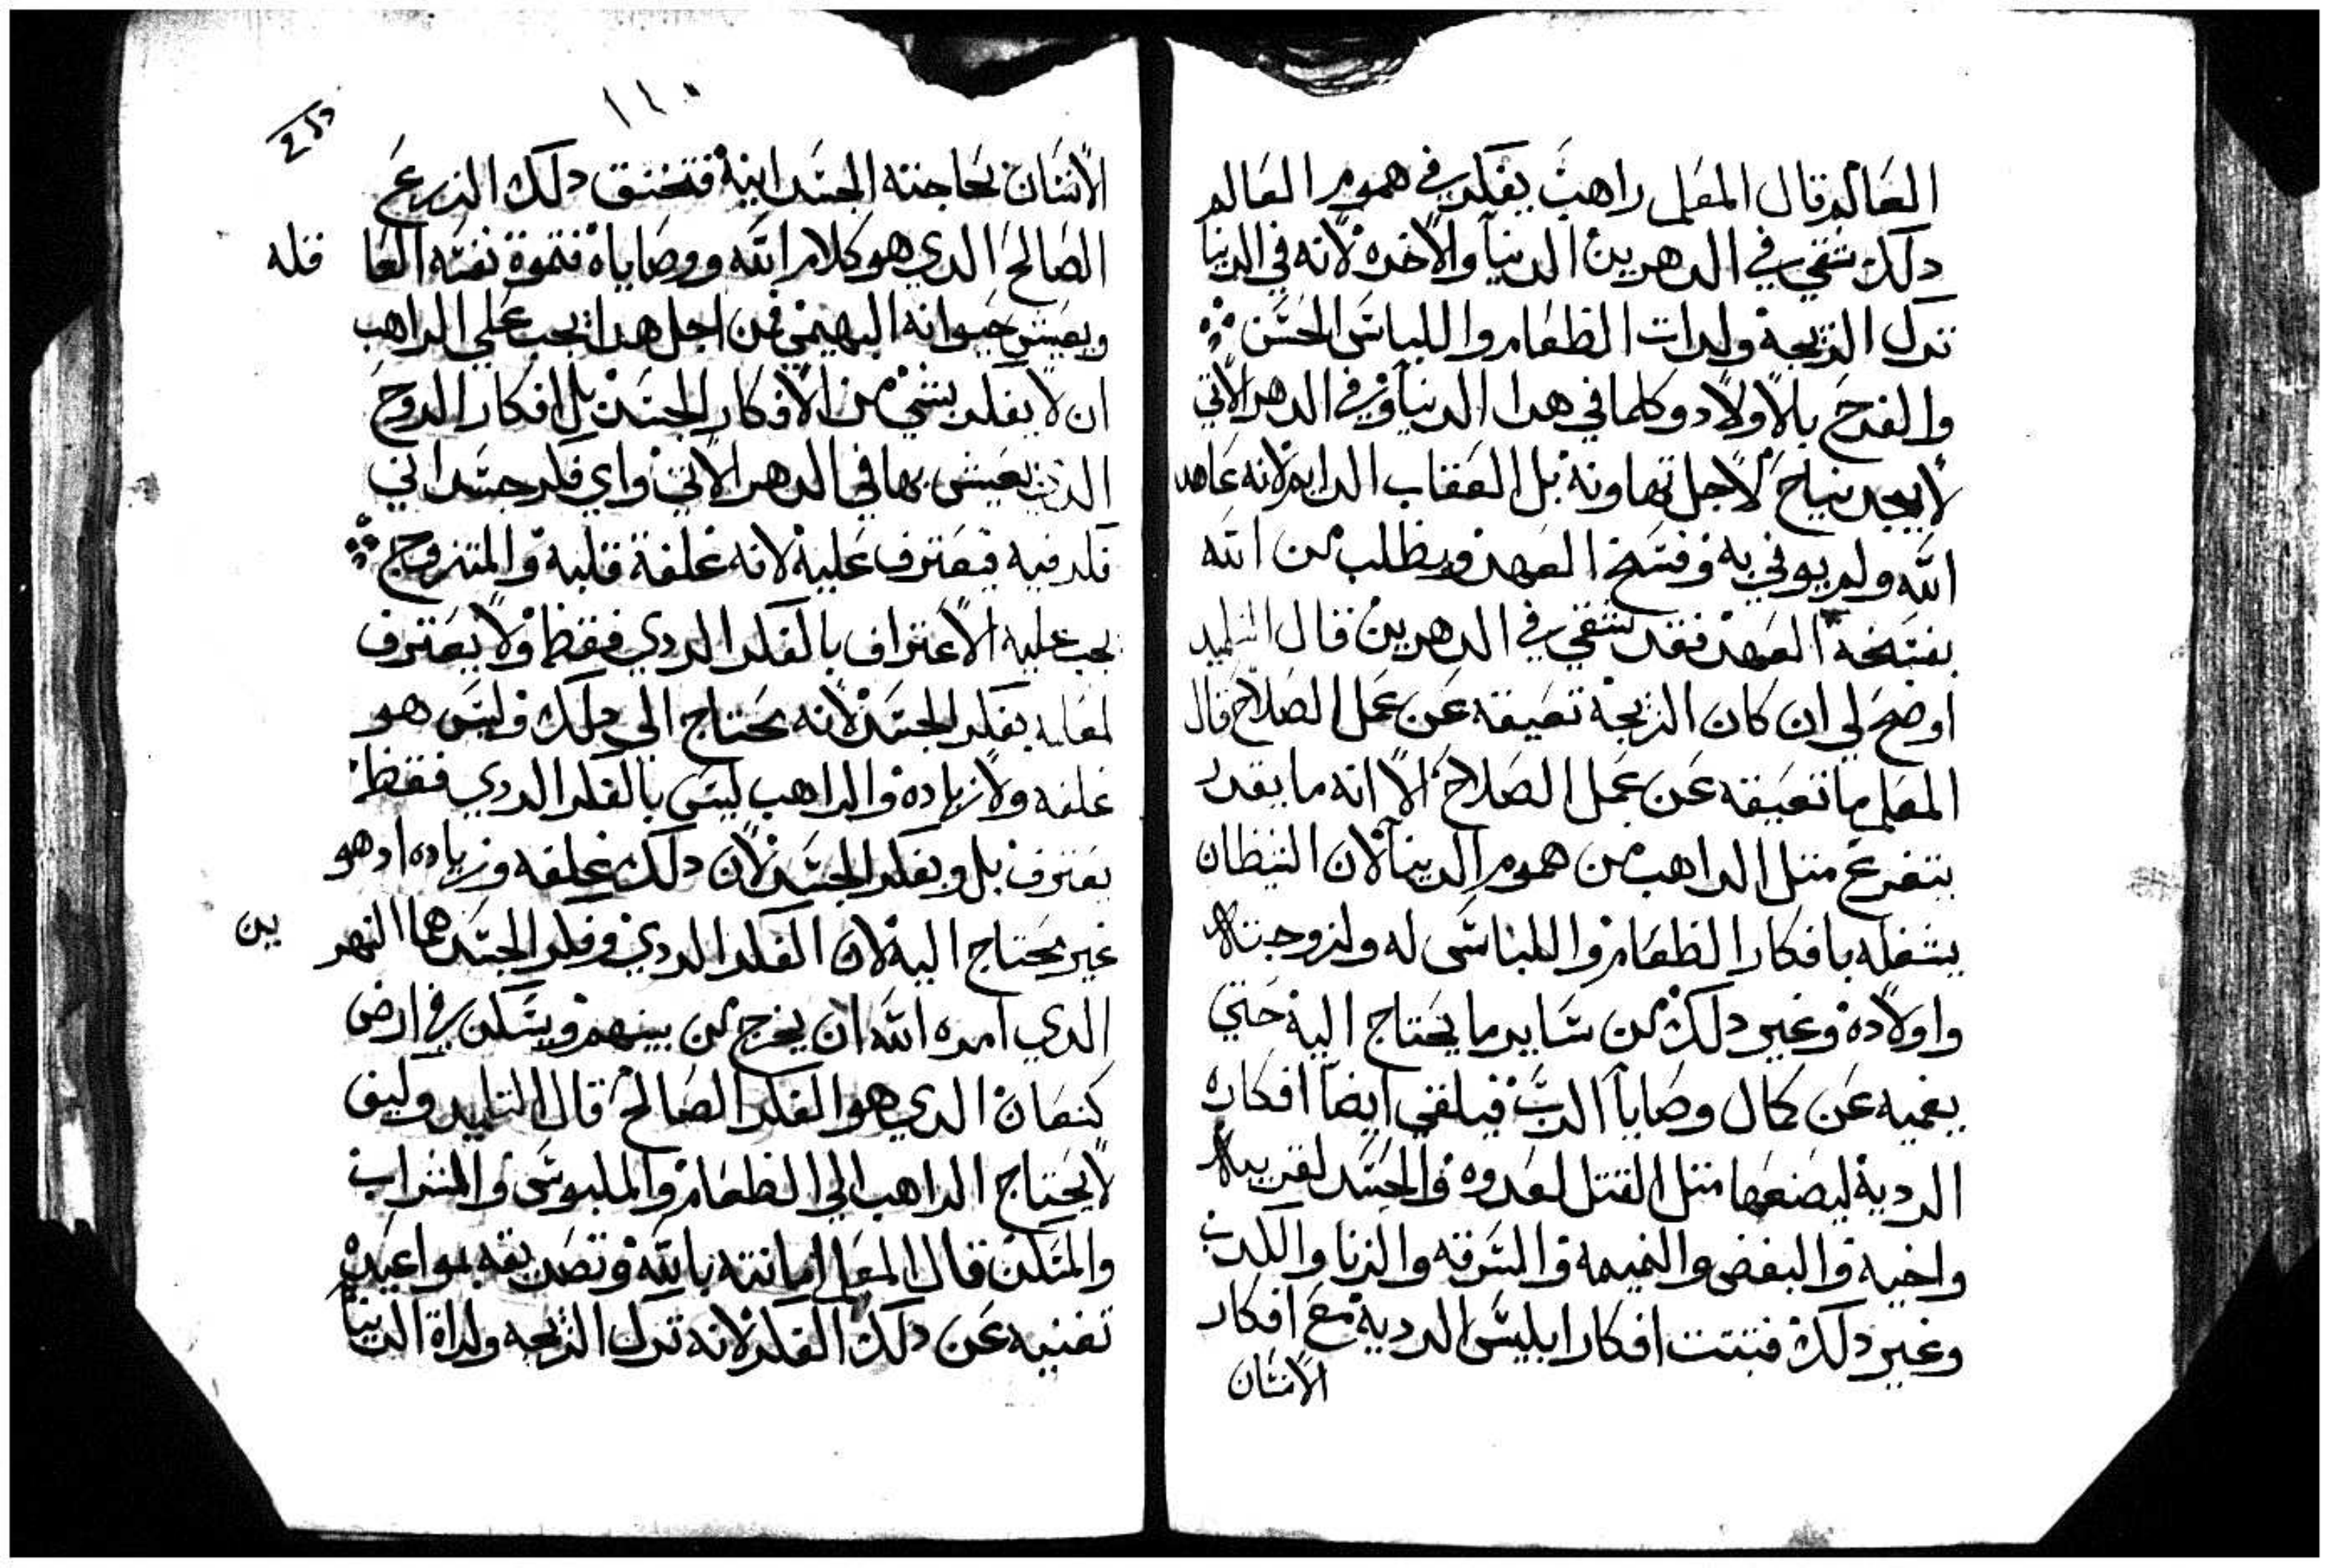 العالم قال المعلم راهب يفكر في هموم العالم
دلك شقي في الدهرين الدنيا والاخره لانه في الدنيا
ترك الزيجة ولدات الطعام واللباس الحسن
والفرح بالاولاد وكلما في هدا الدنيا وفي الدهر الاتي
لا يجد نياح لاجل تهاونه بل العقاب الدايم لانه عاهد
الله ولم يوفي به وفسخ العهد ويطلب من الله
بفسخة العهد فقد شقي في الدهرين قال التلميد
اوضح لي ان كان الزيجة تعيقه عن عمل الصلاح قال
المعلم ما تعيقه عن عمل الصلاح الا انه ما يقدر
يتفرغ متل الراهب من هموم الدنيا لان الشيطان
يشغله بافكار الطعام واللباس له ولزوجته
واولاده وغير دلك من ساير ما يحتاج اليه حتي
يعميه عن كمال وصايا الرب فيلقي ايضا افكاره
الرديه ليصنعها متل القتل لعدوه والحسد لقريبه
واخيه والبغض والنميمه والسرقه والزنا والكدب
وغير دلك فتبتت افكار ابليس الرديه مع افكار
الانسان
١١٠
الانسان لحاجته الجسدانية فتخنق دلك الزرع
الصالح الدي هو كلام الله ووصاياه فتموة نفسه العا قله
ويعيش حيوانه البهيمي فمن اجل هدا يجب علي الراهب
ان لا يفكر بشي من الافكار الجسد بل افكار الروح
الدي يعيش بها في الدهر الاتي واي فكر جسداني
فكر فيه فيعترف عليه لانه غلفة قلبه والمتزوج
يجب عليه الاعتراف بالفكر الردي فقط ولا يعترف
لمعلمه بفكر الجسد لانه يحتاج الي دلك وليس هو
غلفه ولا زياده والراهب ليس بالفكر الردي فقط
يعترف بل وبفكر الجسد لان دلك غلفه وزياده اد هو
غير محتاج اليه لان الفكر الردي وفكر الجسد هما النهر ين
الدي امره الله ان يخرج من بينهم ويسكن في ارض
كنعان الدي هو الفكر الصالح قال التلميد وكيف
لا يحتاج الراهب الي الطعام والملبوس والشراب
والمسكن قال المعلم امانته بالله وتصديقه بمواعيده
تغنيه عن دلك الفكر لانه ترك الزيجه ولداة الدنيا